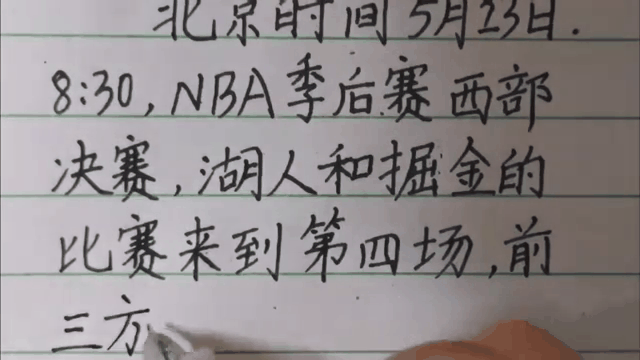 北京时间5月23日.
8:30,NBA季后赛西部
决赛,湖人和掘金的
比赛来到第四场,前
三方